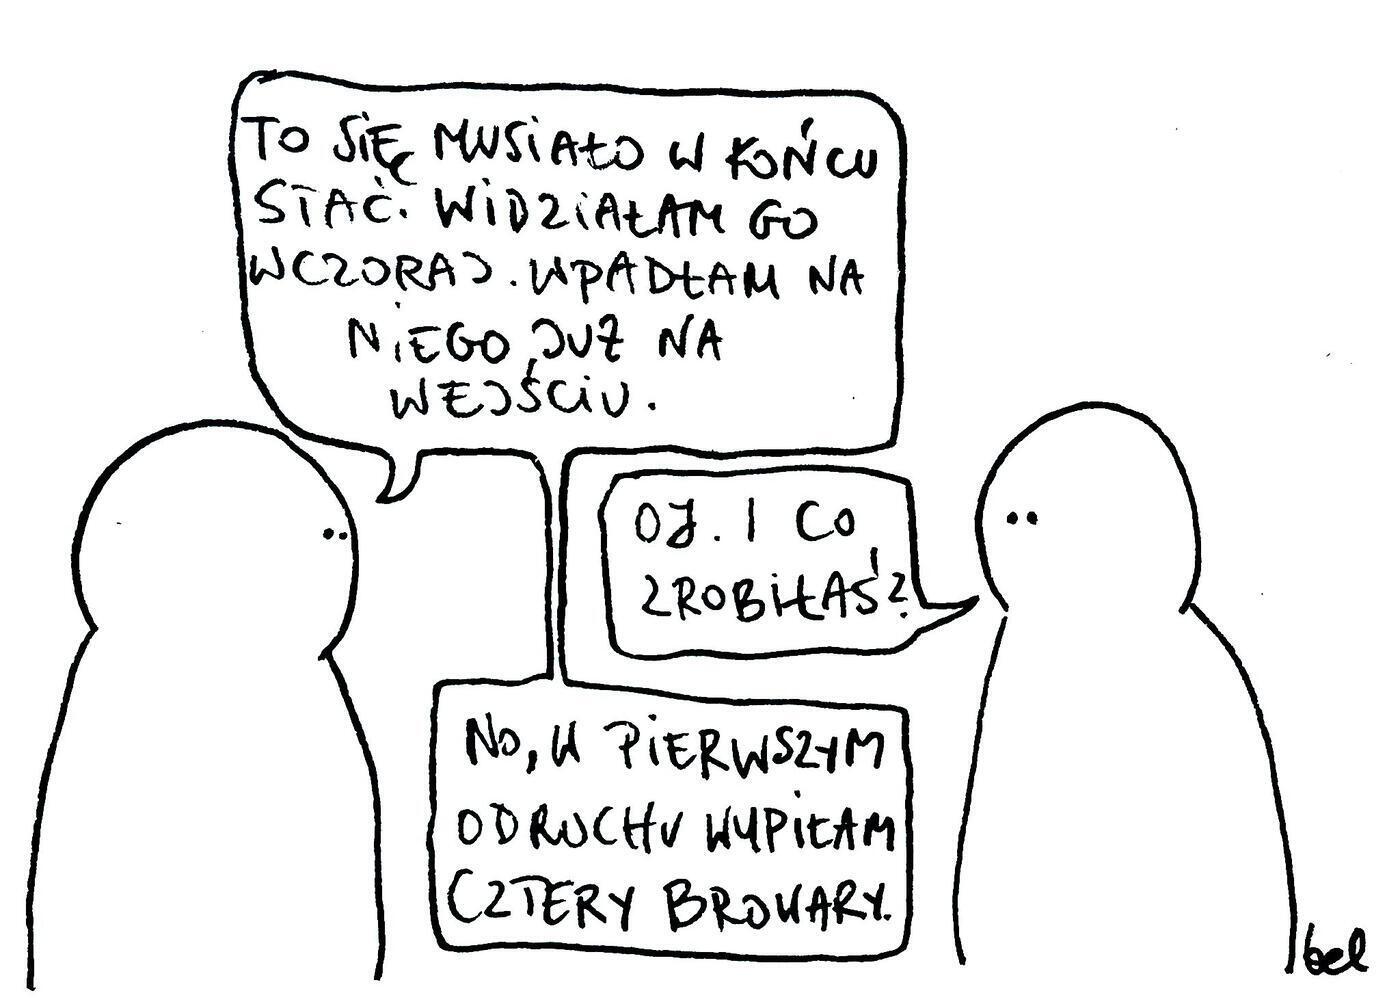 TO SIĘ MUSIAŁO W KOŃCU
STAĆ. WIDZIAŁAM GO
WCZORAJ. WPADŁAM NA
NIEGO JUŻ NA
WEJŚCIU.
OJ. I CO
ZROBIŁAŚ?
NO, W PIERWSZYM
ODRUCHU WYPIŁAM
CZTERY BROWARY.
bel